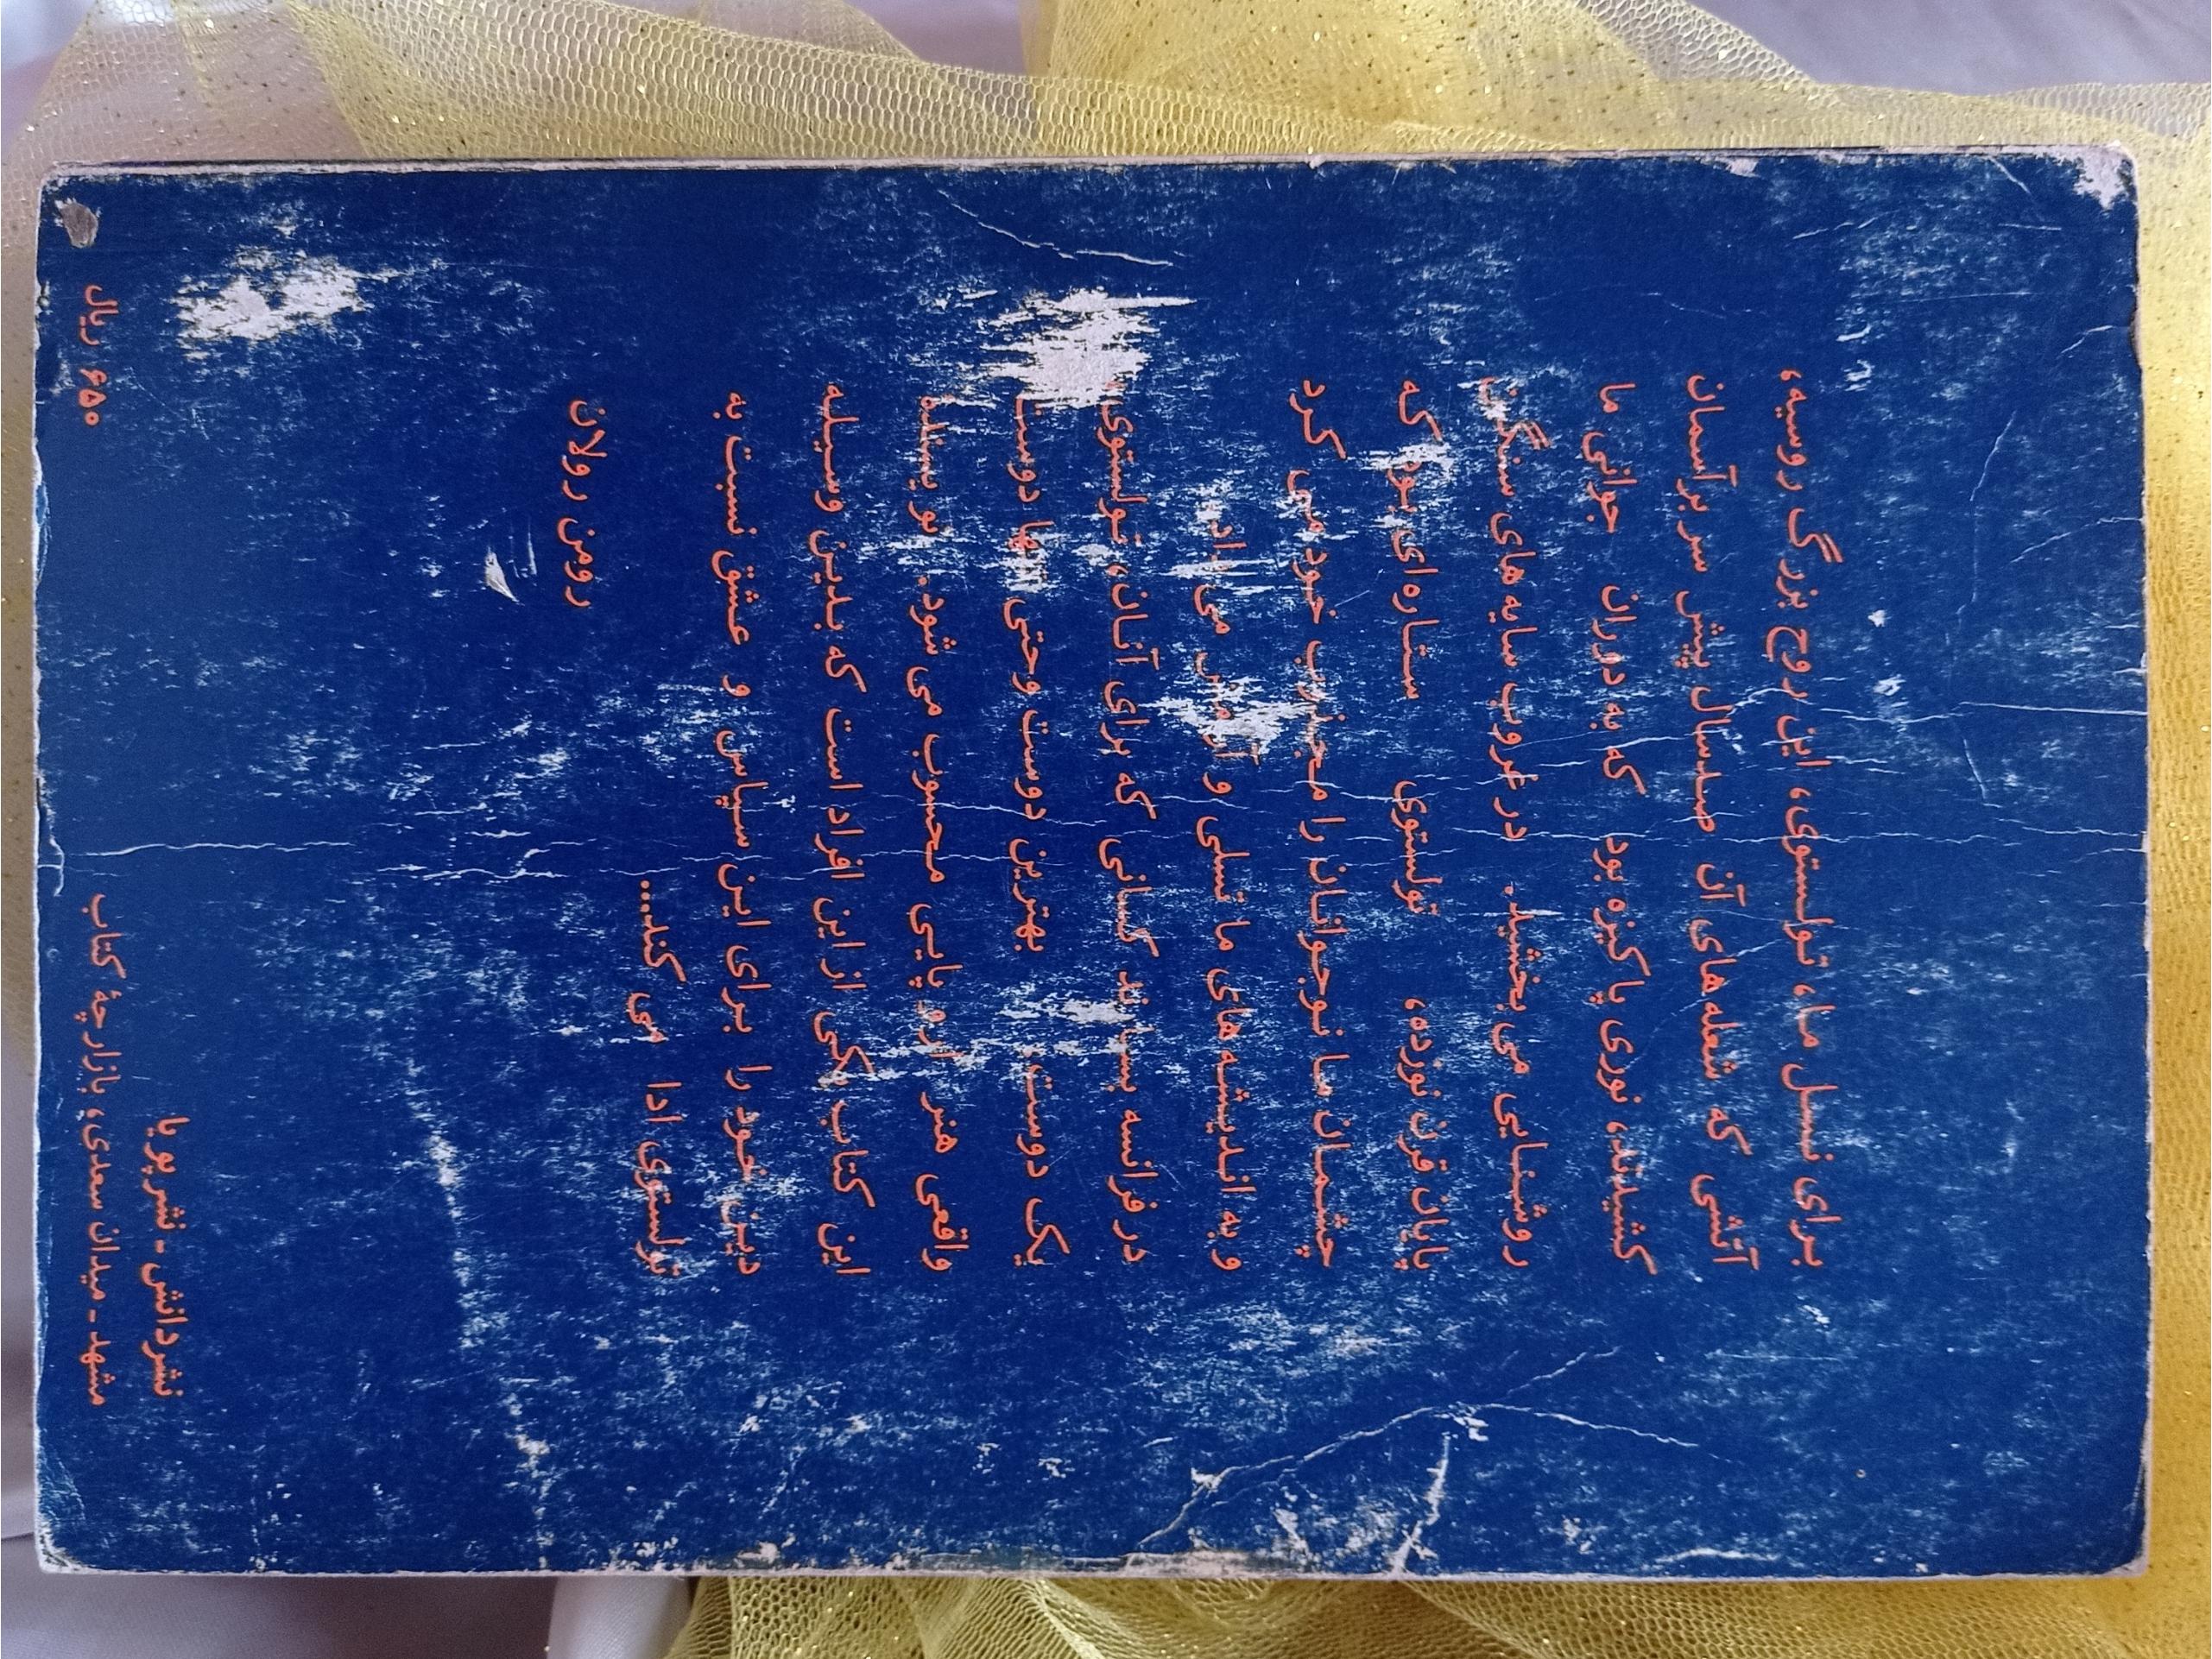 برای نسل ما، تولستوی، این روح بزرگ روسیه،
آتشی که شعله‌های آن صدسال پیش سر برآسمان
کشیدند، نوری پاکیزه بود که به دوران جوانی ما
روشنایی می‌بخشید. در غروب سایه‌های سنگین
پایان قرن نوزده، تولستوی ستاره‌ای بود که
چشمان ما نوجوانان را مجذوب خود می کرد
و به اندیشه‌های ما تسلی و آرامش می‌داد.
در فرانسه بسیارند کسانی که برای آنان، تولستوی
یک دوست، بهترین دوست وحتی تنها دوست
واقعی هنر اروپایی محسوب می شود. نویسندهٔ
این کتاب یکی از این افراد است که بدین وسیله
دین خود را برای این سپاس و عشق نسبت به
تولستوی ادا می کند...
رومن رولان
نشر دانش - نشر پویا
مشهد - میدان سعدی، بازارچهٔ کتاب
۶۵۰ ریال